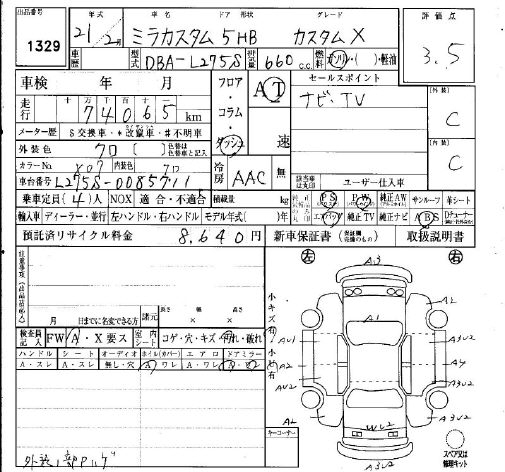 出品番号 年式 車名 ドア 形状 グレード 評価点
1329 21/2月 ミラカスタム 5HB カスタム X 3.5
車歴 型式 DBA-L275S 排気量 660 c.c. 燃料 ガソリン・( )・軽油
車検 年 月 フロア・コラム・ダッシュ AT 速 セールスポイント 外装
走行 74065 km ナビ・TV C
メーター歴 S 交換車・* 改竄車・# 不明車 内装
外装色 クロ ( ) 色替は色替車と記入 C
カラーNo. X07 内装色 クロ 冷房 AAC 無
車台番号 L275S-0085711 ユーザー仕入車
乗車定員 (4) 人 NOX 適合・不適合 積載量 kg PS PW 純正AW サンルーフ 革シート
輸入車 ディーラー・並行 左ハンドル・右ハンドル モデル年式( )年 エアバッグ 純正TV 純正ナビ ABS
預託済リサイクル料金 8,640 円 新車保証書 取扱説明書
左 右
A3
A2
A1
小キズ有
小凹有
AU1 A3U2
A2 A4
AU2 A3U2
A2 A3U2
WU2
A3U2
月 日までに名変できる方 諸元 長さ 幅 高さ
検査員記入 FW A・X要ス 室内シート コゲ・穴・キズ 汚れ・破れ
ハンドル シート オーディオ ホイル(カバー) エアロ ドアミラー
A・スレ A・スレ 無し・穴 A・ワレ A・ワレ A・ワレ
キーコーナー
スペア又は修理キット